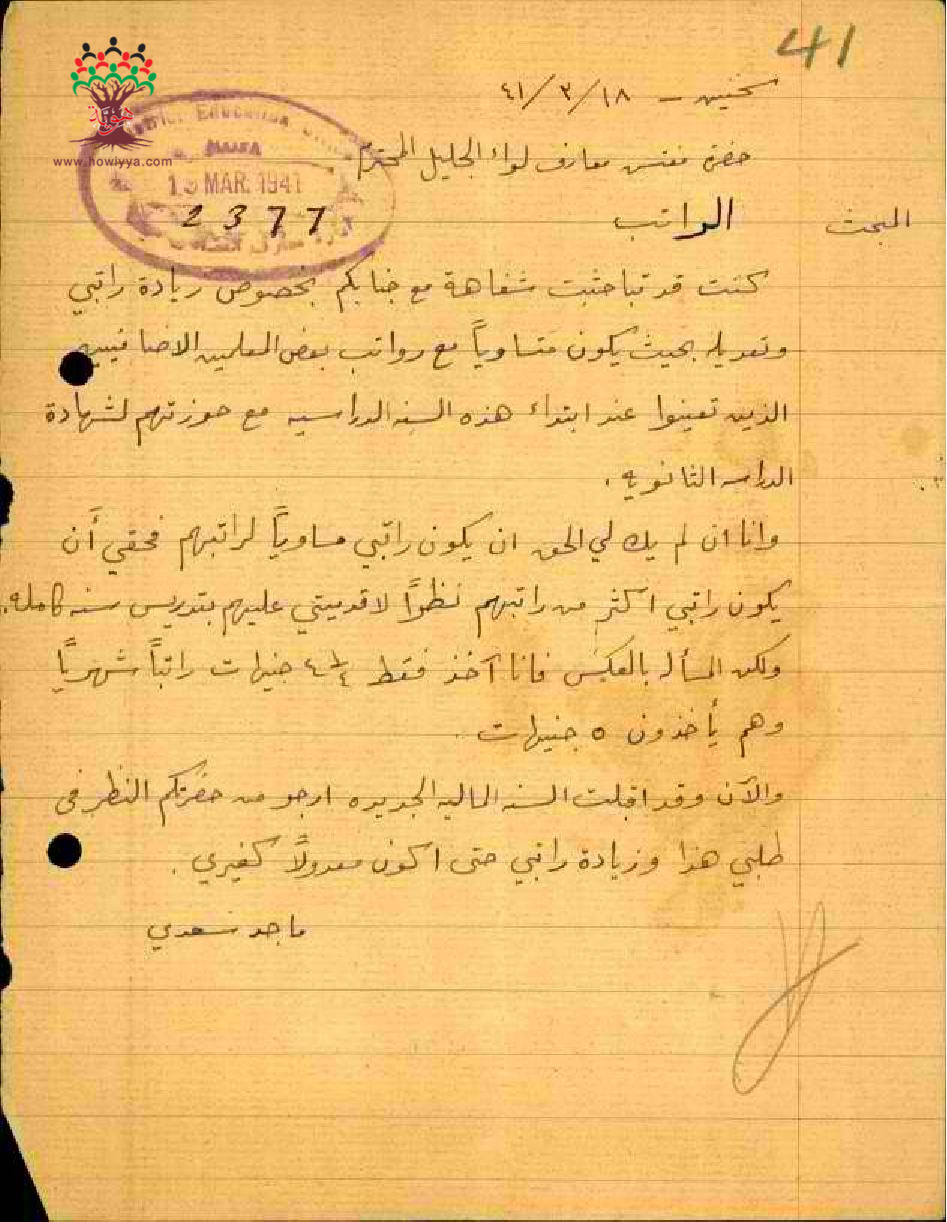 41
سخنين - ١٨/٣/٤١
هوية
www.howiyya.com
District Education
HAIFA
19 MAR. 1941
2377
حضرة مفتش معارف لواء الجليل المحترم
المبحث الراتب
كنت قد تباحثت شفاهة مع جنابكم بخصوص زيادة راتبي
وتعديله بحيث يكون متساوياً مع رواتب بعض المعلمين الاضافيين
الذين تعينوا عند ابتداء هذه السنه الدراسيه مع حوزتهم لشهادة
الدراسه الثانويه .
وانا ان لم يك لي الحق ان يكون راتبي مساوياً لراتبهم فحقي أن
يكون راتبي اكثر من راتبهم نظراً لاقدميتي عليهم بتدريس سنه كامله.
ولكن المسأله بالعكس فانا آخذ فقط ٤ ١/٤ جنيهات راتباً شهرياً
وهم يأخذون ٥ جنيهات .
والآن وقد اقبلت السنه الماليه الجديده ارجو من حضرتكم النظر في
طلبي هذا وزيادة راتبي حتى اكون معدولاً كغيري .
ماجد سعدي